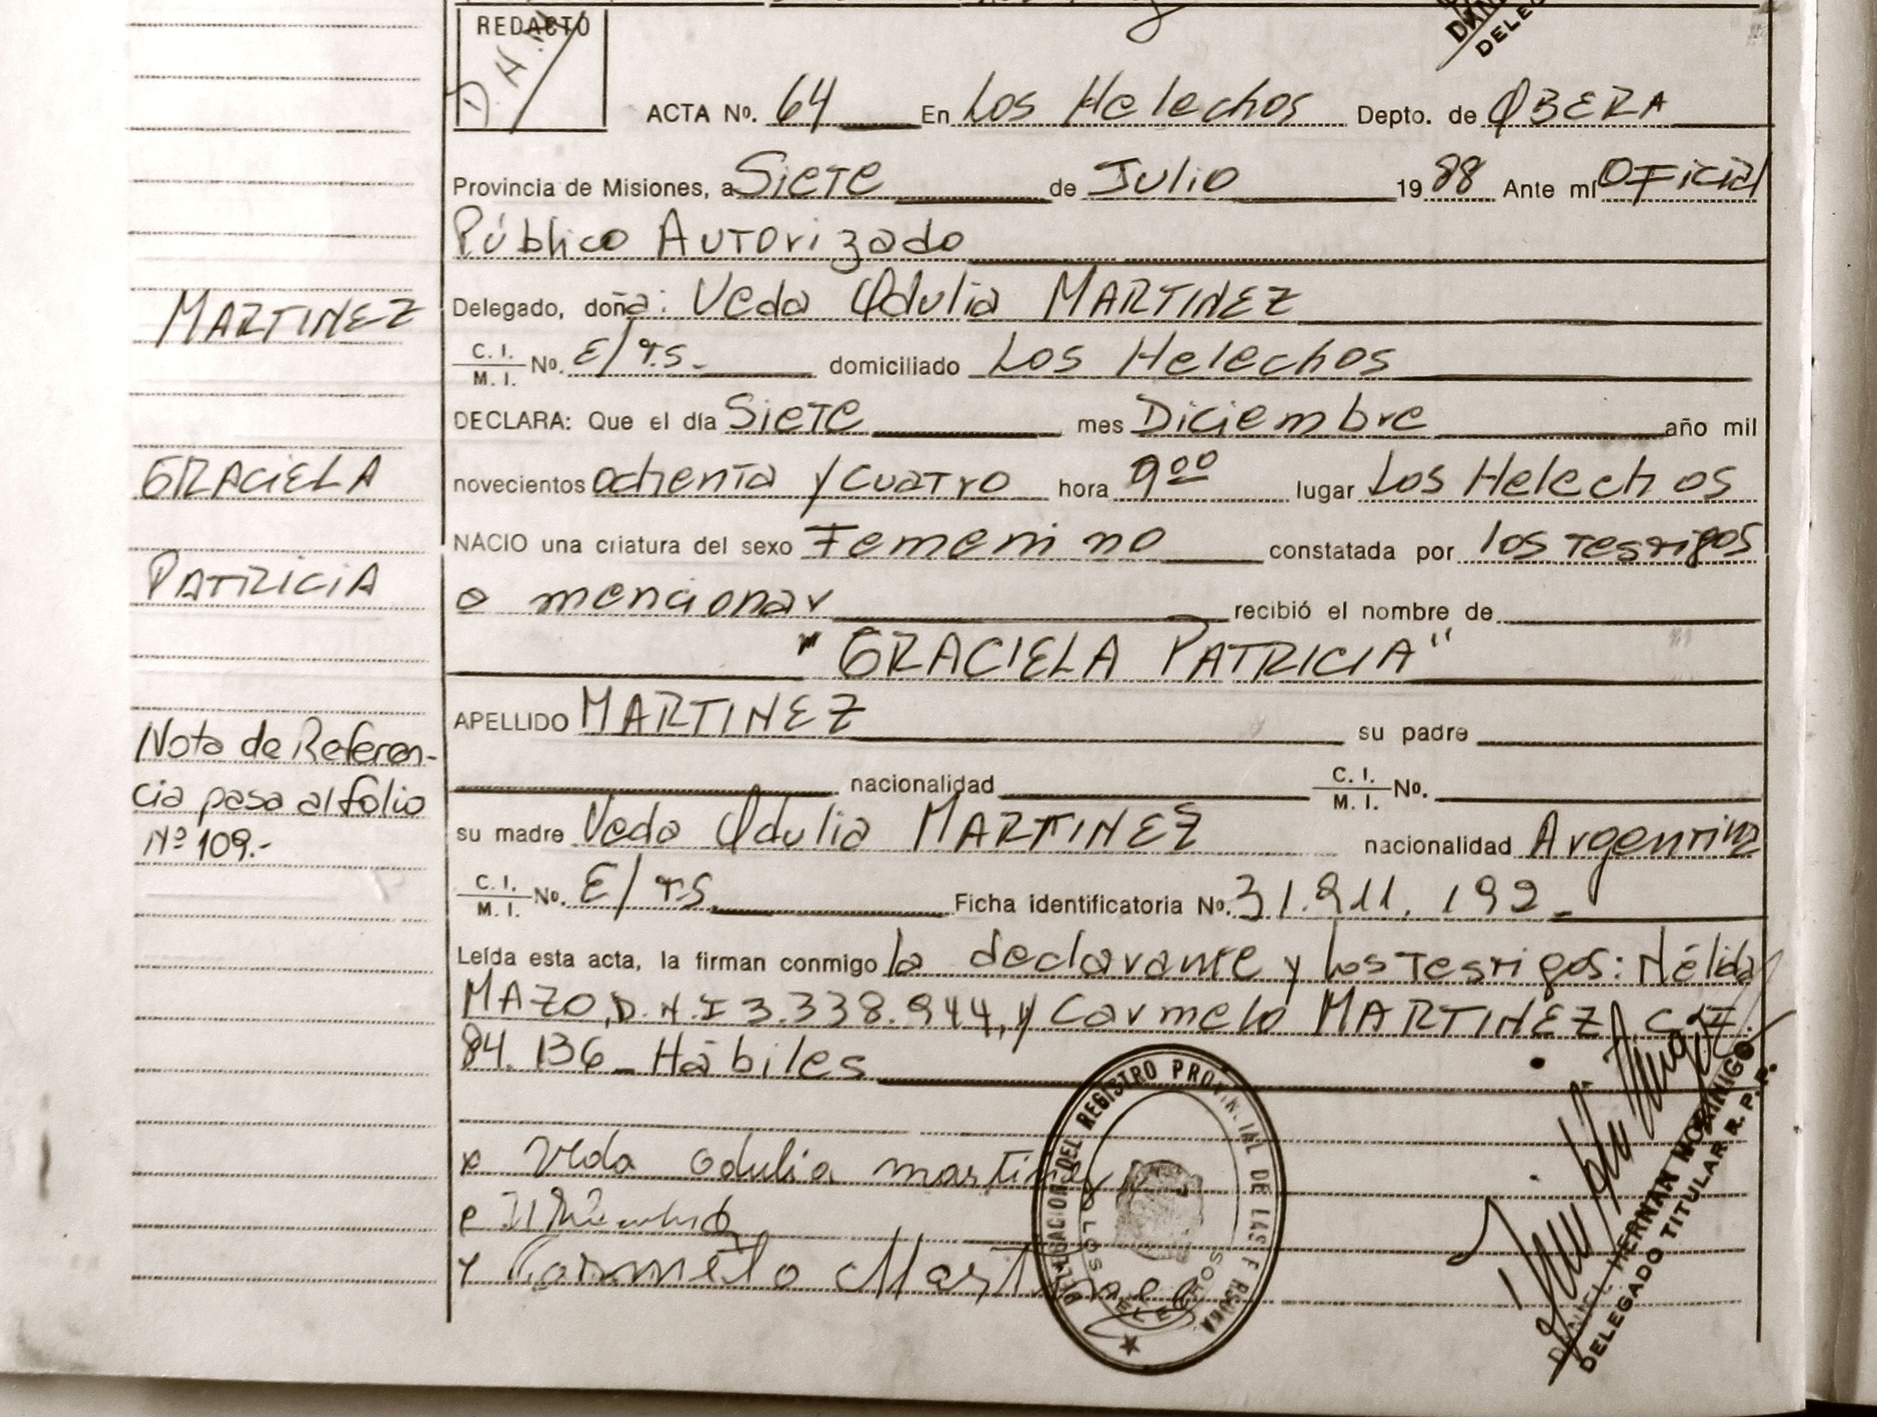 REDACTO
D.H.M
DELE
ACTA Nº. 64 En Los Helechos Depto. de OBERA
Provincia de Misiones, a Siete de Julio 1988 Ante mí Oficial
Público Autorizado
Delegado, doña: Veda Odulia MARTINEZ
C. I. / M. I. Nº. E/T.S. domiciliado Los Helechos
DECLARA: Que el día Siete mes Diciembre año mil
novecientos ochenta y cuatro hora 9⁰⁰ lugar Los Helechos
NACIO una criatura del sexo Femenino constatada por los testigos
a mencionar recibió el nombre de
"GRACIELA PATRICIA"
APELLIDO MARTINEZ su padre
nacionalidad C. I. / M. I. Nº.
su madre Veda Odulia MARTINEZ nacionalidad Argentina
C. I. / M. I. Nº. E/T.S. Ficha identificatoria Nº. 31.911.192
Leída esta acta, la firman conmigo la declarante y los Testigos: Nélida
MAZO, D.N.I 3.338.944, y Carmelo MARTINEZ C.I.
84.136 Hábiles
Veda Odulia Martinez
Carmelo Martinez
MARTINEZ
GRACIELA
PATRICIA
Nota de Referen-
cia pasa al folio
Nº 109.-
DELEGACION DEL REGISTRO PROVINCIAL DE LAS PERSONAS
LOS HELECHOS
DANIEL HERNAN MORINIGO
DELEGADO TITULAR R. P. P.